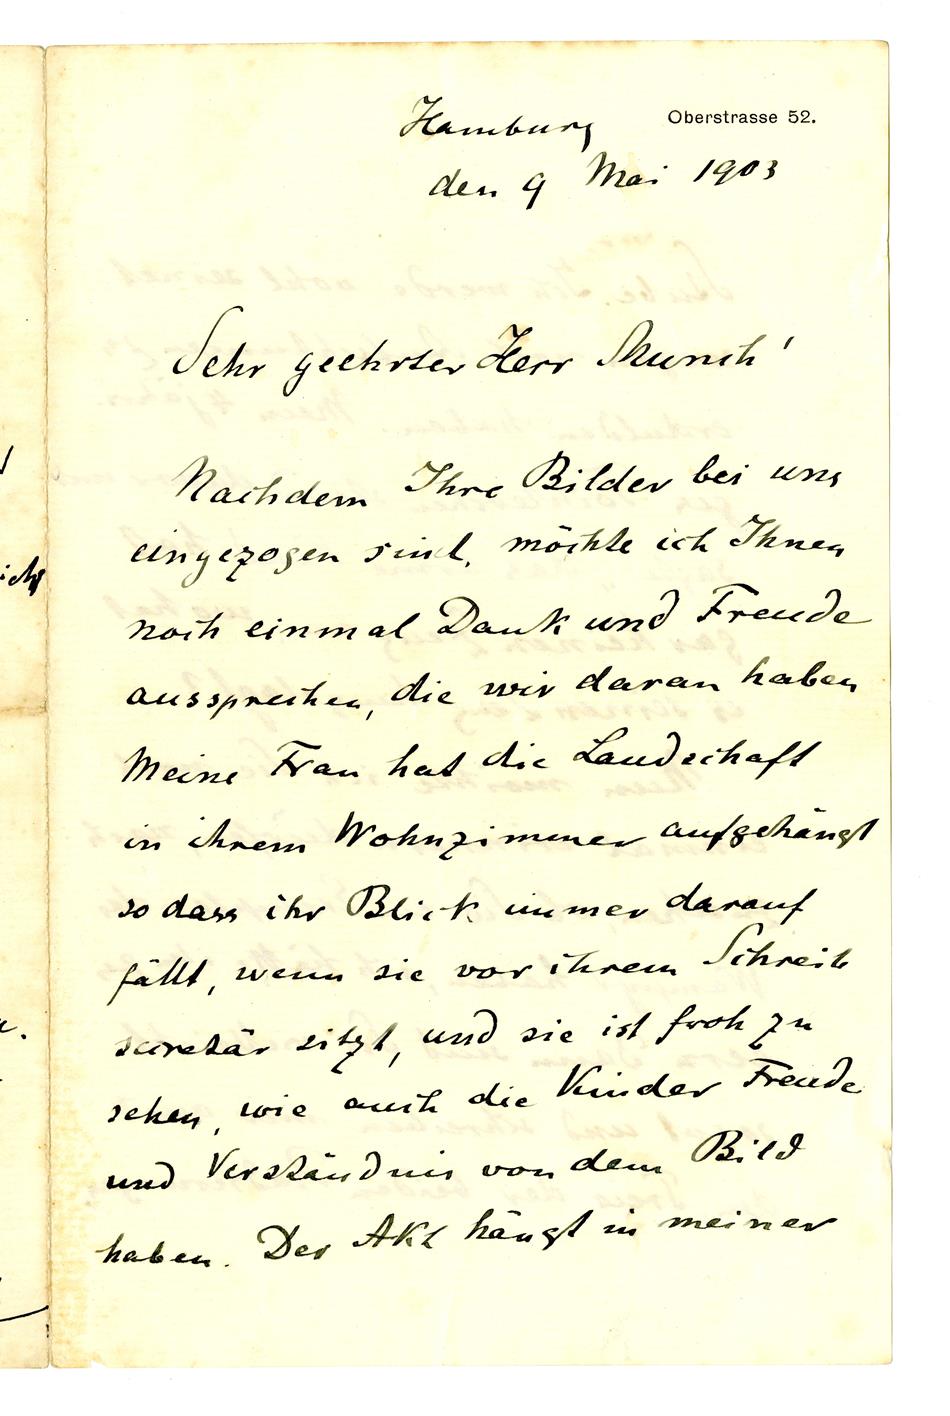 Oberstrasse 52.
Hamburg
den 9 Mai 1903
Sehr geehrter Herr Munch!
Nachdem Ihre Bilder bei uns
eingezogen sind, möchte ich Ihnen
noch einmal Dank und Freude
aussprechen, die wir daran haben
Meine Frau hat die Landschaft
in ihrem Wohnzimmer aufgehängt
so dass ihr Blick immer darauf
fällt, wenn sie vor ihrem Schreib
secretär sitzt, und sie ist froh zu
sehen, wie auch die Kinder Freude
und Verständnis von dem Bild
haben. Der Akt hängt in meiner